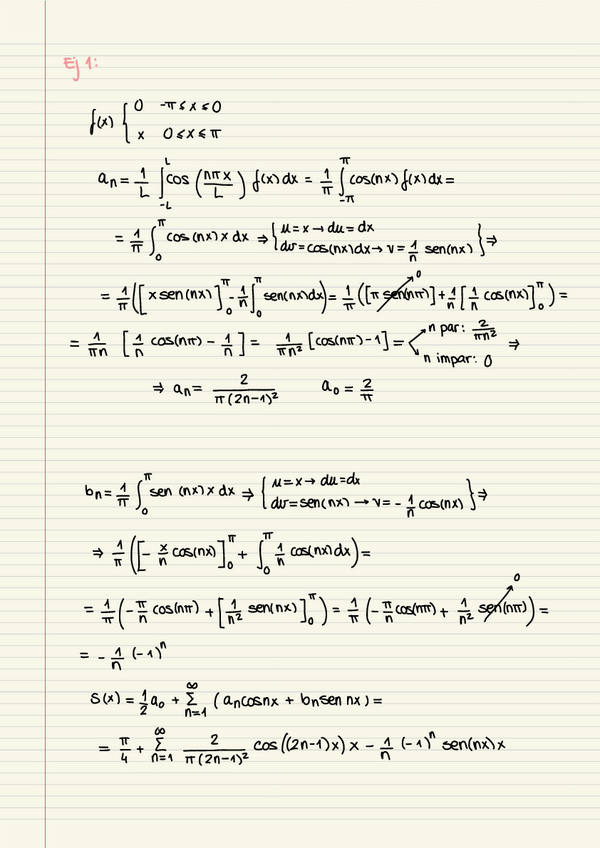 Ej 1:
f(x) { 0 -π ≤ x ≤ 0
x 0 ≤ x ≤ π
aₙ = 1/L ∫_{-L}^{L} cos (nπx/L) f(x) dx = 1/π ∫_{-π}^{π} cos(nx) f(x) dx =
= 1/π ∫_0^π cos(nx) x dx ⇒ { u = x → du = dx
dv = cos(nx)dx → v = 1/n sen(nx) } ⇒
= 1/π ([x sen(nx)]_0^π - 1/n ∫_0^π sen(nx)dx) = 1/π ([π sen(nπ)] + 1/n [1/n cos(nx)]_0^π) =
0
= 1/πn [1/n cos(nπ) - 1/n] = 1/πn² [cos(nπ) - 1] = n par: 2/πn²
n impar: 0 ⇒
⇒ aₙ = 2/π(2n-1)² a₀ = 2/π
bₙ = 1/π ∫_0^π sen (nx) x dx ⇒ { u = x → du = dx
dv = sen(nx) → v = - 1/n cos(nx) } ⇒
⇒ 1/π ([- x/n cos(nx)]_0^π + ∫_0^π 1/n cos(nx) dx) =
= 1/π (- π/n cos(nπ) + [1/n² sen(nx)]_0^π) = 1/π (- π/n cos(nπ) + 1/n² sen(nπ)) =
0
= - 1/n (-1)ⁿ
S(x) = 1/2 a₀ + Σ_{n=1}^∞ (aₙ cos nx + bₙ sen nx) =
= π/4 + Σ_{n=1}^∞ 2/π(2n-1)² cos((2n-1)x) x - 1/n (-1)ⁿ sen(nx) x